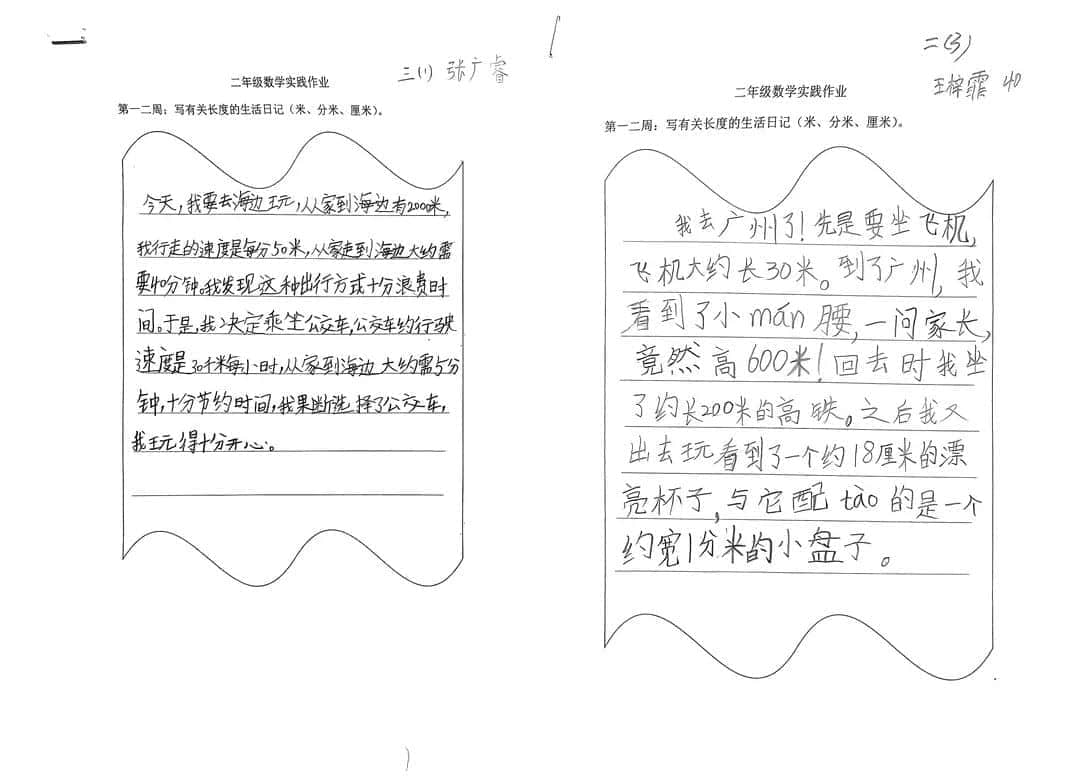 三(1) 张广睿
二年级数学实践作业
第一二周：写有关长度的生活日记（米、分米、厘米）。
今天,我要去海边玩,从家到海边有2000米,
我行走的速度是每分50米,从家走到海边大约需
要40分钟。我发现这种出行方式十分浪费时
间。于是,我决定乘坐公交车,公交车约行驶
速度是30千米每小时,从家到海边大约需5分
钟,十分节约时间,我果断选择了公交车,
我玩得十分开心。
二(3)
王梓霏 40
二年级数学实践作业
第一二周：写有关长度的生活日记（米、分米、厘米）。
我去广州了!先是要坐飞机,
飞机大约长30米。到了广州,我
看到了小mán腰,一问家长,
竟然高600米!回去时我坐
了约长200米的高铁。之后我又
出去玩看到了一个约18厘米的漂
亮杯子,与它配tào的是一个
约宽1分米的小盘子。